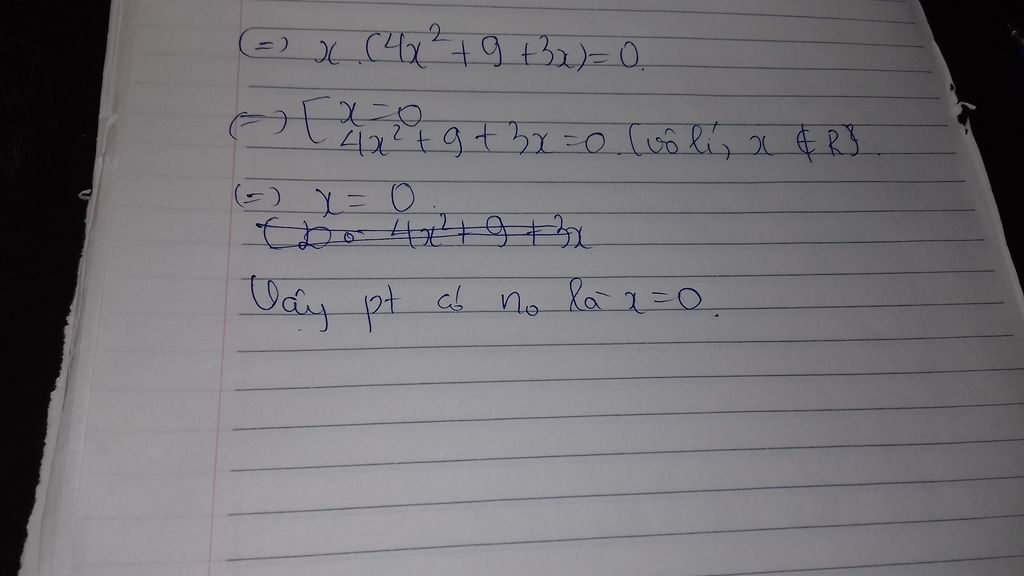 (=) x.(4x²+9+3x)=0.
(=) [x=0
4x²+9+3x=0.(vô lí, x ∉ R}.
(=) x=0.
4x²+9+3x
Vây pt có no là x=0.